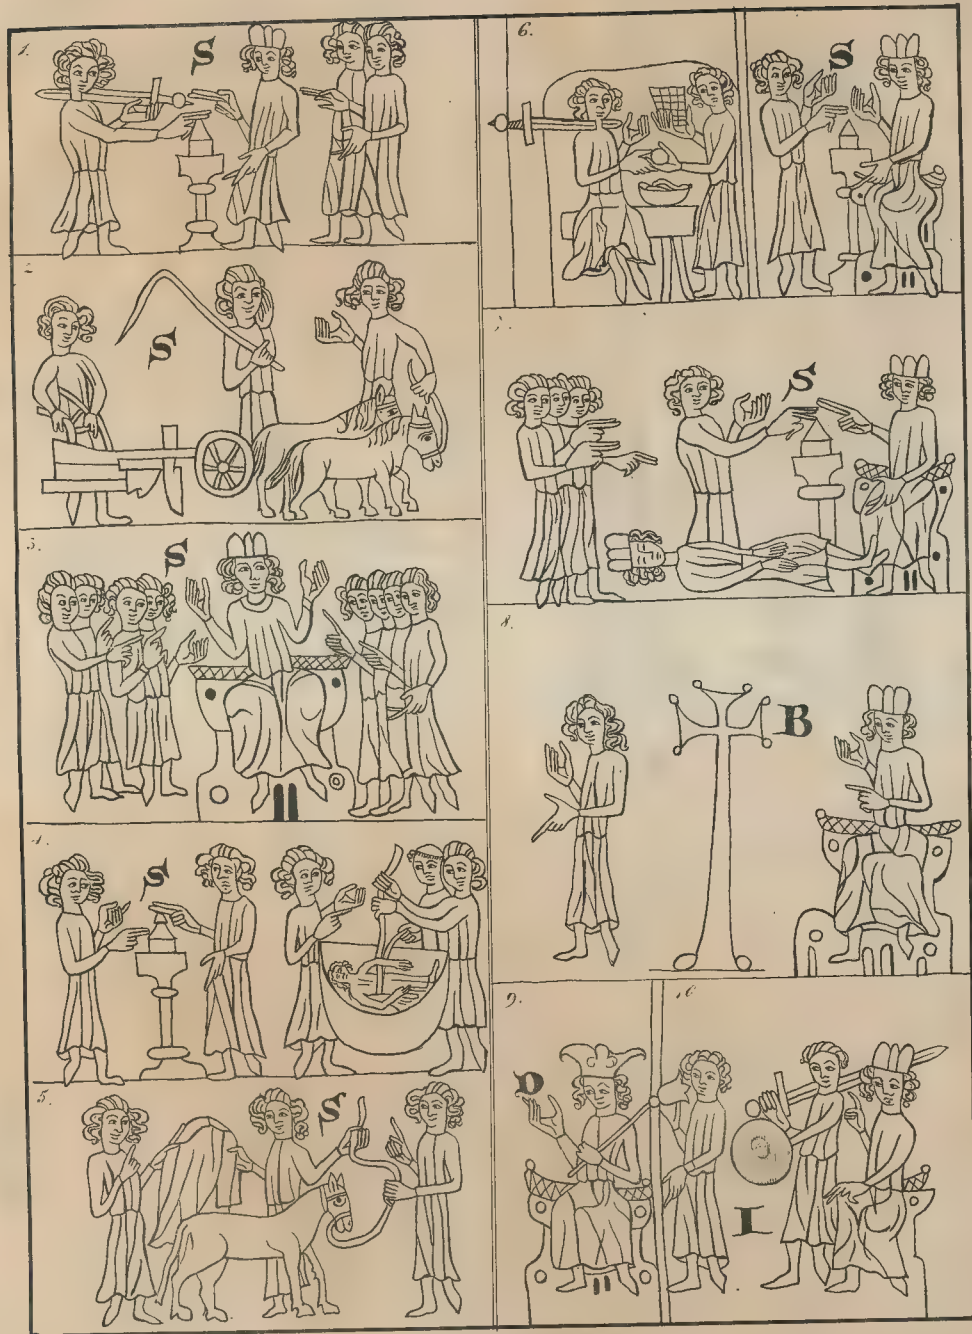 1.
S
2
S
3.
S
4.
S
5.
S
6.
S
S
8.
B
9.
D
10
I